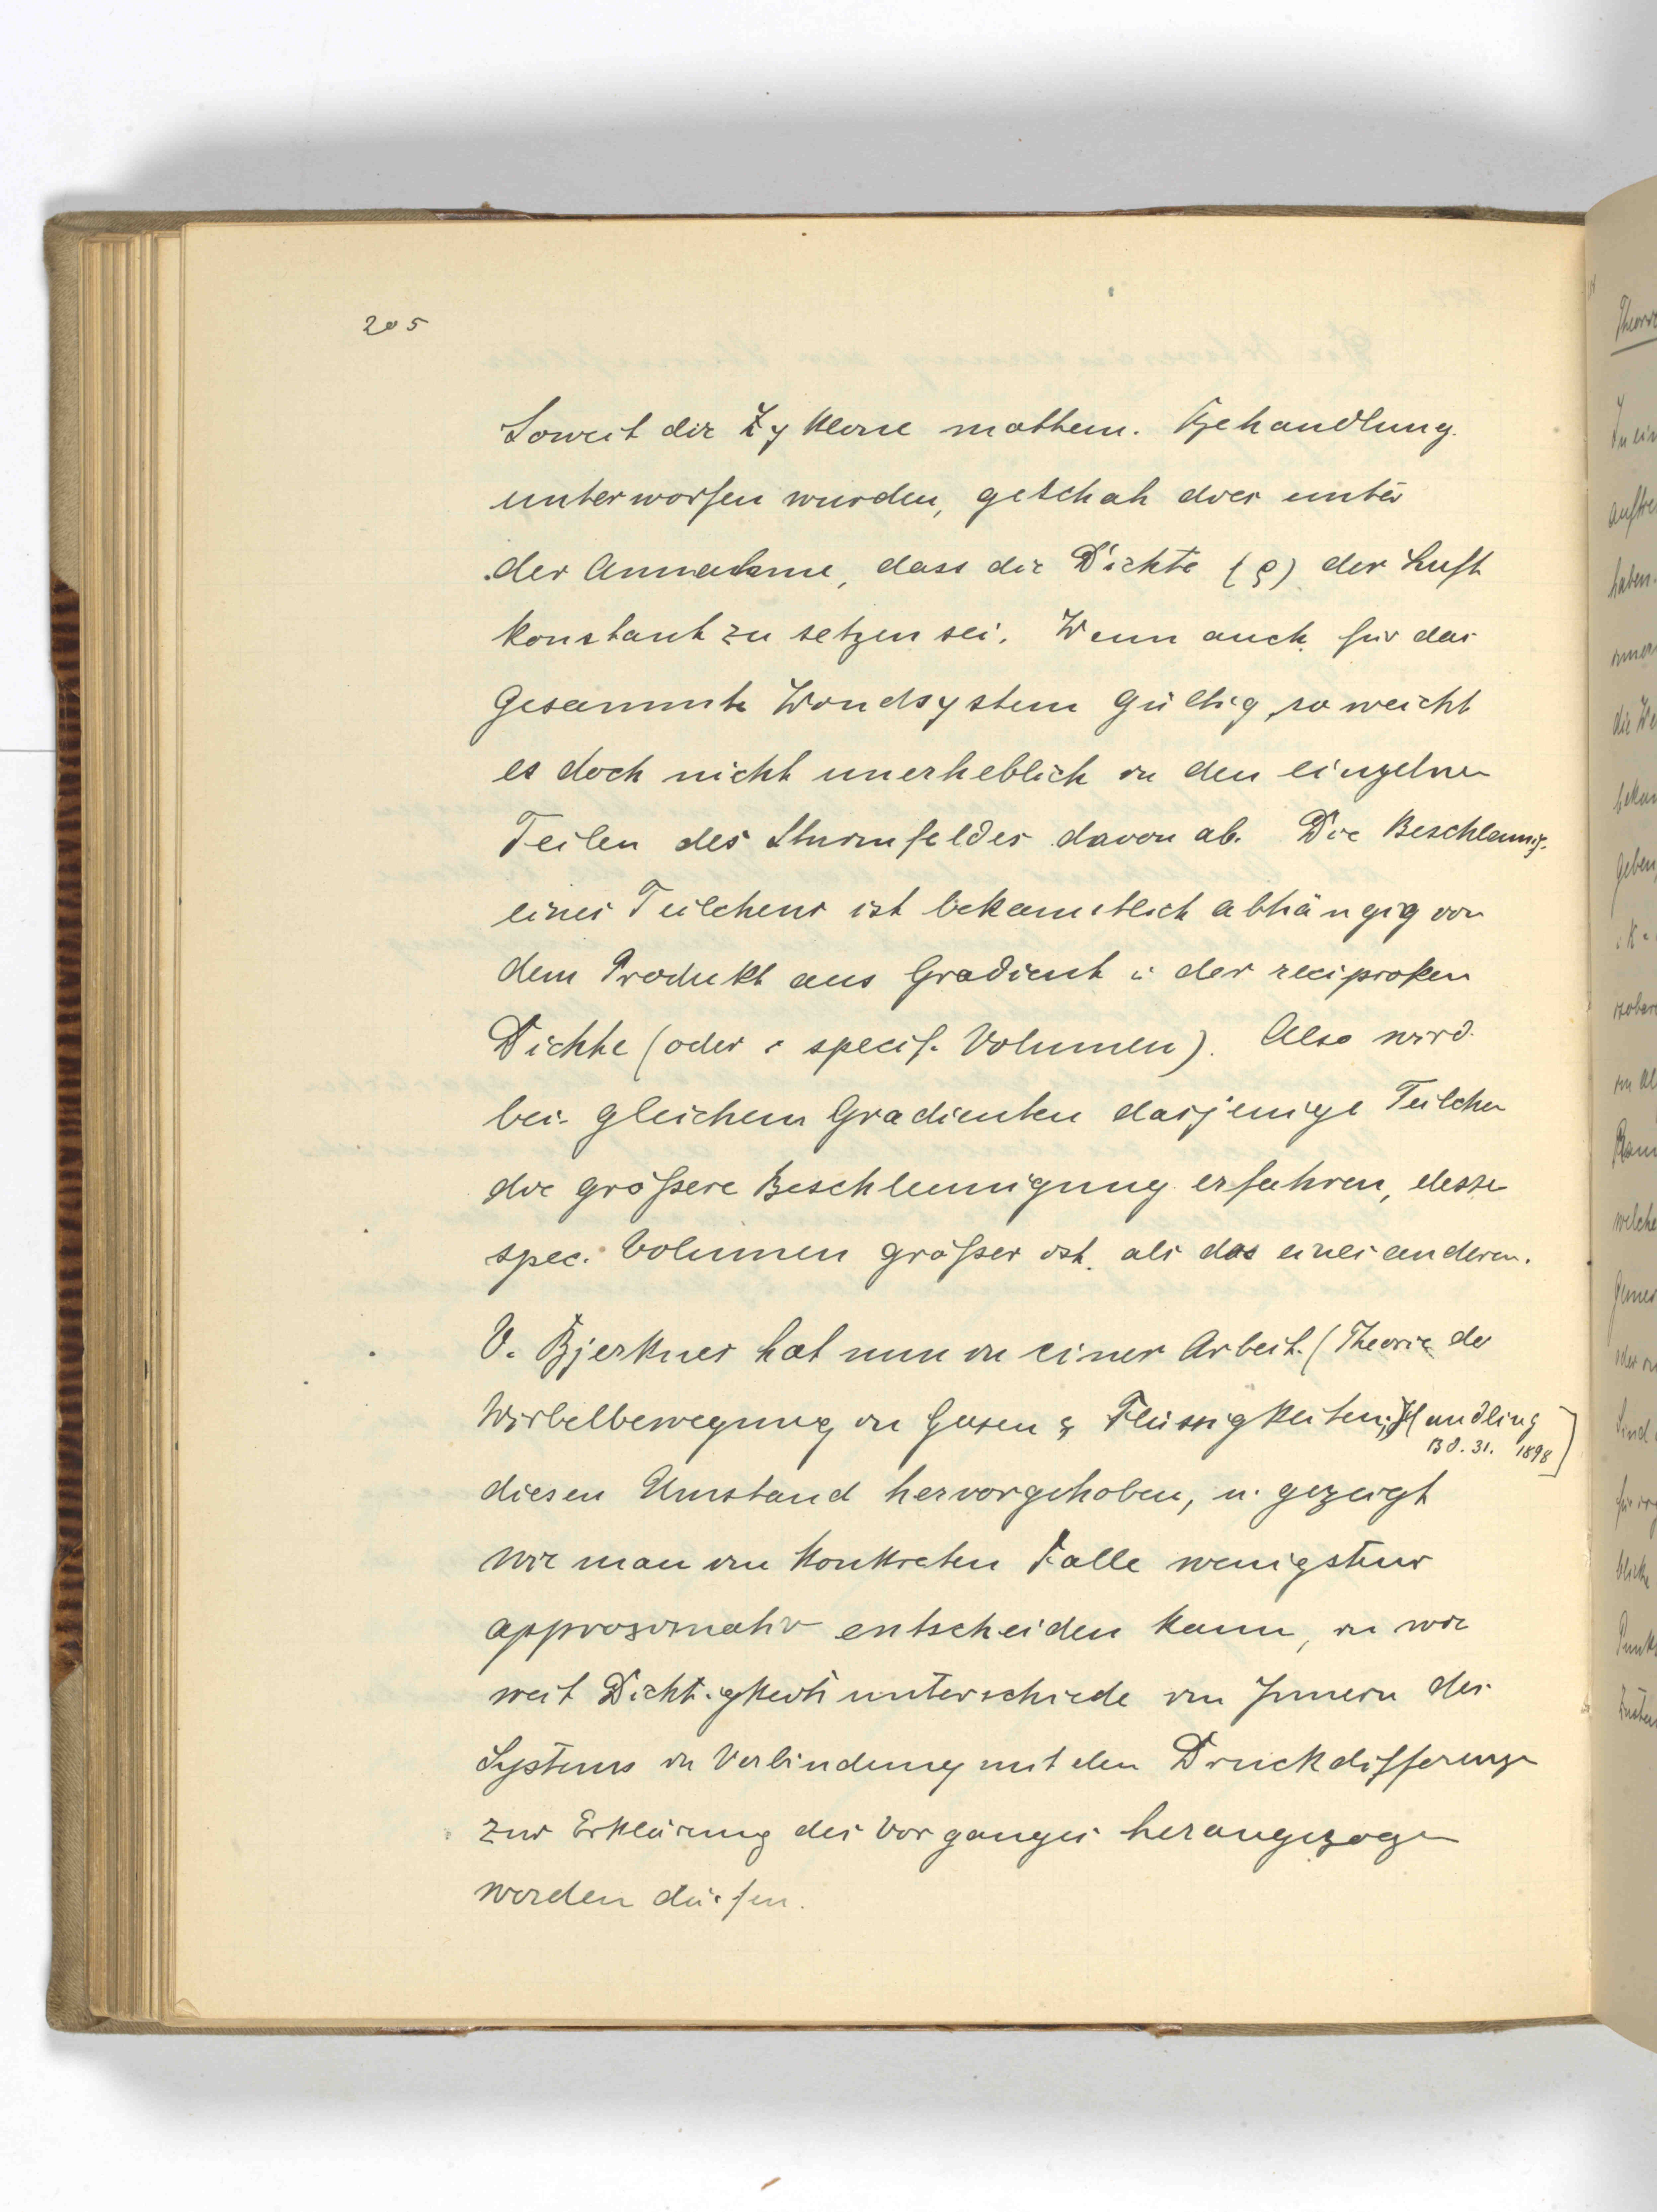 205
Soweit die Zyklone mathem. Behandlung
unterworfen wurden, geschah dies unter
der Annahme, dass die Dichte (ρ) der Luft
konstant zu setzen sei. Wenn auch für das
gesammte Windsystem gültig, so weicht
es doch nicht unerheblich in den einzelnen
Teilen des Sturmfeldes davon ab. Die Beschleunig.
eines Teilchens ist bekanntlich abhängig von
dem Produkt aus Gradient u. der reciproken
Dichte (oder specif. Volumen). Also wird
bei gleichem Gradienten dasjenige Teilchen
die größere Beschleunigung erfahren, dessen
spec. Volumen größer ist als das eines anderen.
V. Bjerknes hat nun in einer Arbeit (Theorie der
Wirbelbewegung in Gasen & Flüssigkeiten; Handling
Bd. 31. 1898)
diesen Umstand hervorgehoben, u. gezeigt
wie man im konkreten Falle wenigstens
approximativ entscheiden kann, in wie
weit Dichtigkeitsunterschiede im Innern des
Systems in Verbindung mit den Druckdifferenzen
zur Erklärung des Vorganges herangezogen
werden dürfen.